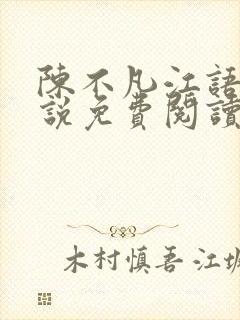 陳不凡江語
說免費閱讀
木村慎吾 江城